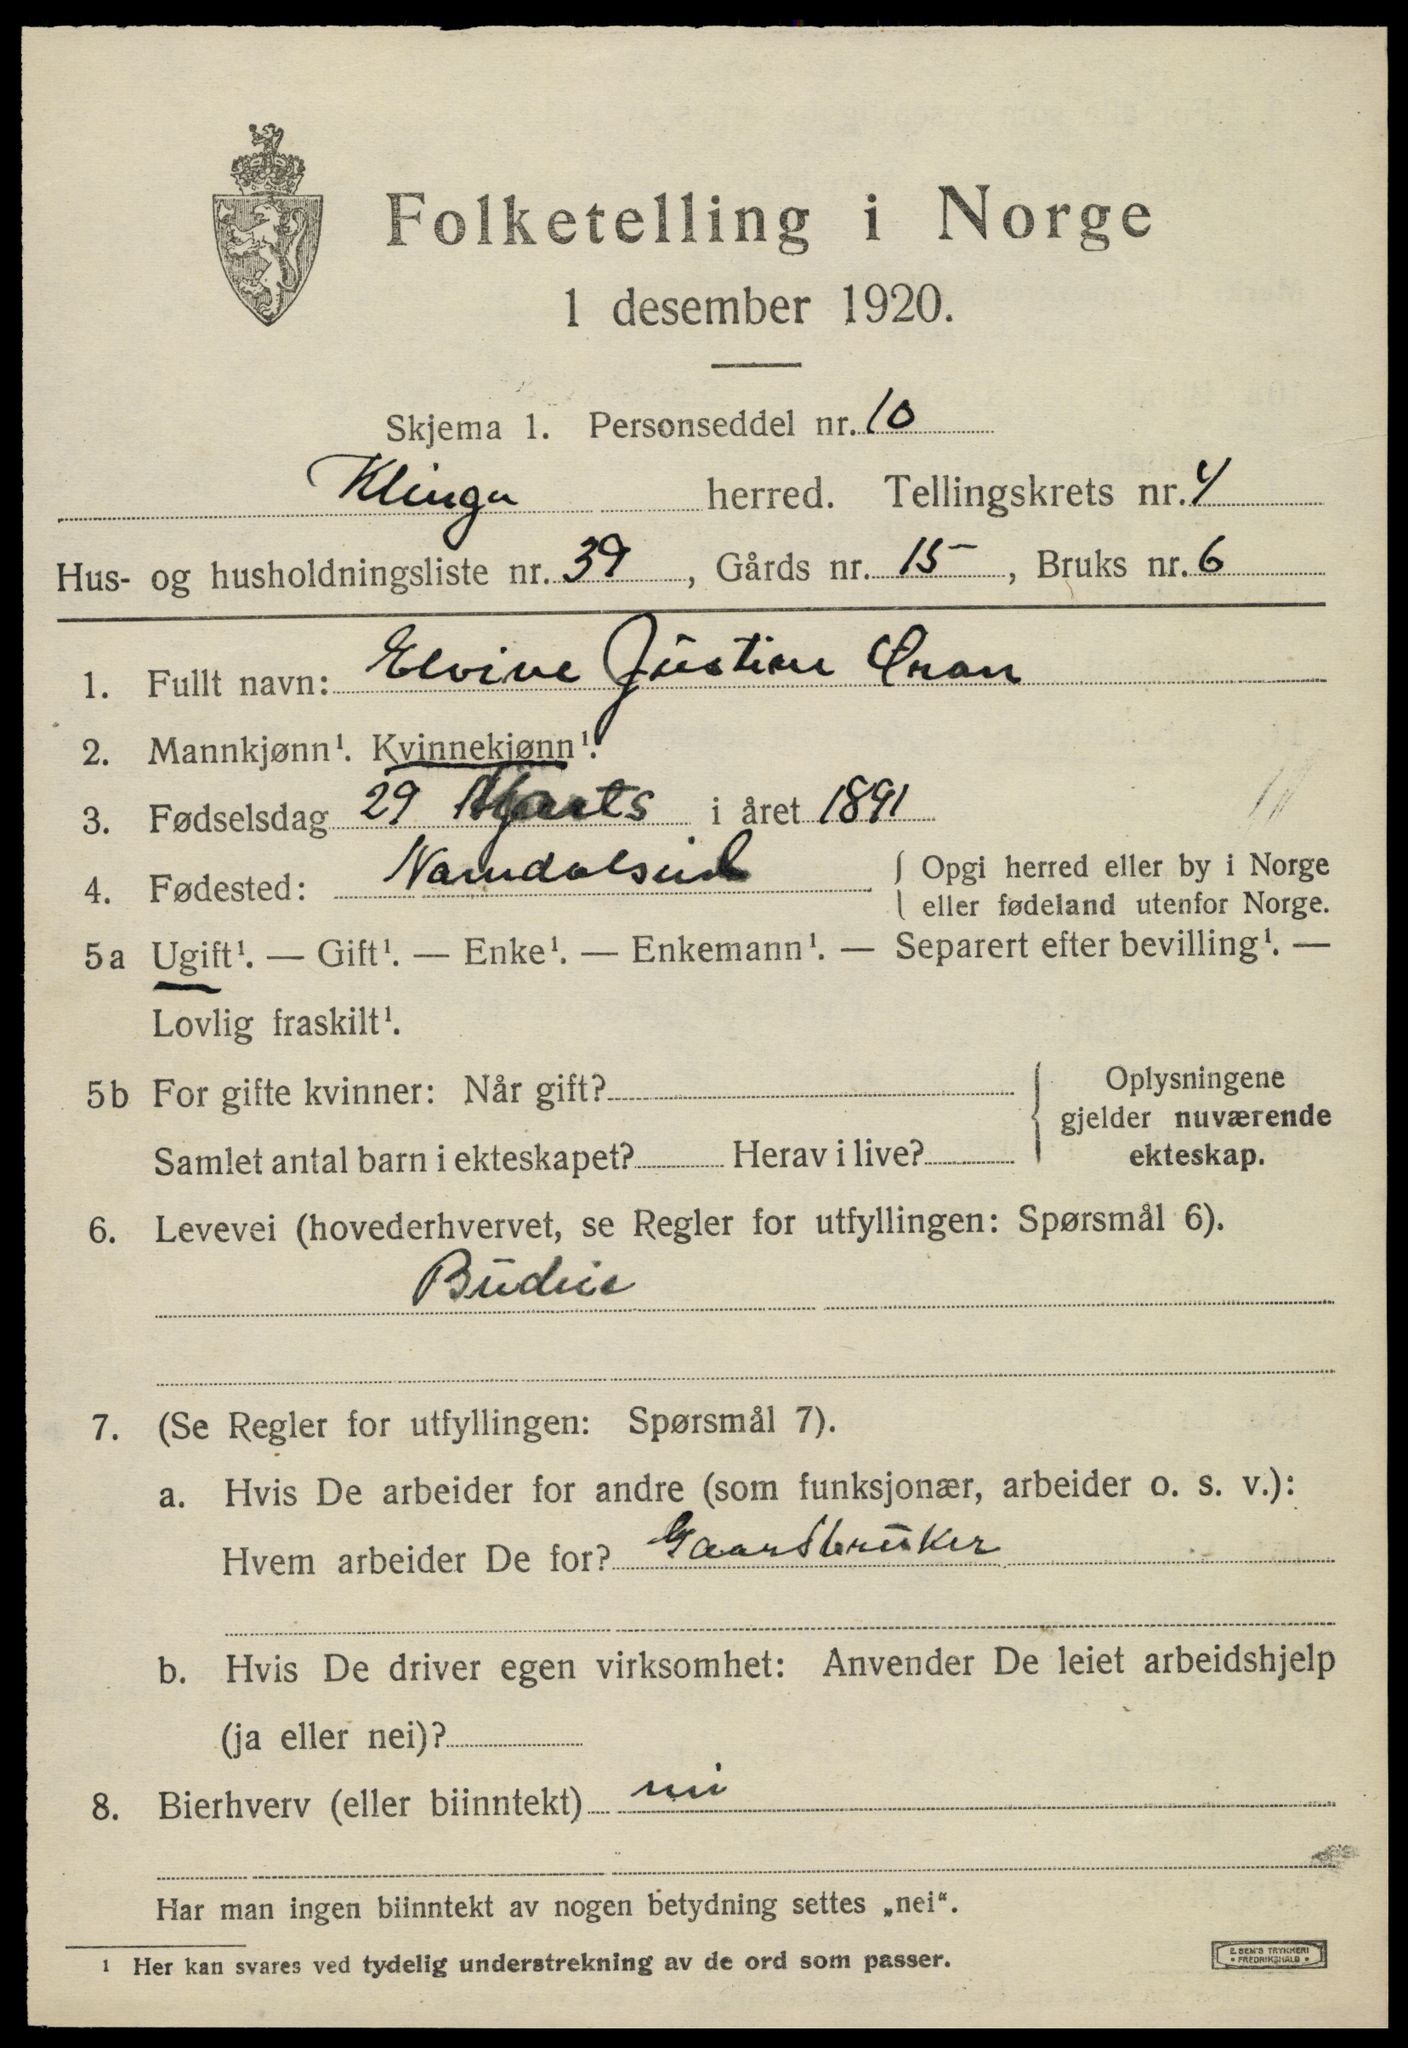 Folketelling i Norge
1 desember 1920.
Skjema 1. Personseddel nr. 10
Klinga herred. Tellingskrets nr. 4
Hus- og husholdningsliste nr. 39, Gårds nr. 15, Bruks nr. 6
1. Fullt navn: Elvine Justine
2. Mannkjønn¹. Kvinnekjønn¹.
3. Fødselsdag 29 Marts i året 1891
4. Fødested: Namdalseid { Opgi herred eller by i Norge
eller fødeland utenfor Norge.
5a Ugift¹. — Gift¹. — Enke¹. — Enkemann¹. — Separert efter bevilling¹. —
Lovlig fraskilt¹.
5b For gifte kvinner: Når gift? { Oplysningene
gjelder nuværende
Samlet antal barn i ekteskapet? Herav i live? ekteskap.
6. Levevei (hovederhvervet, se Regler for utfyllingen: Spørsmål 6).
Budeie
7. (Se Regler for utfyllingen: Spørsmål 7).
a. Hvis De arbeider for andre (som funksjonær, arbeider o. s. v.):
Hvem arbeider De for? Gaardbruker
b. Hvis De driver egen virksomhet: Anvender De leiet arbeidshjelp
(ja eller nei)?
8. Bierhverv (eller biinntekt) nei
Har man ingen biinntekt av nogen betydning settes „nei“.
¹ Her kan svares ved tydelig understrekning av de ord som passer.
E. SEM'S TRYKKERI
• FREDRIKSHALD •